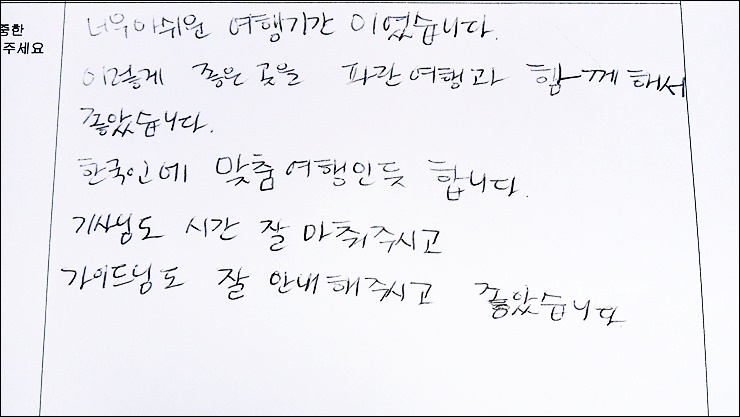 중한
주세요
너무아쉬운 여행기간 이였습니다.
이렇게 좋은 곳을 파란여행과 함께해서
좋았습니다.
한국인에 맞춤여행인듯 합니다.
기사님도 시간 잘 마춰주시고
가이드님도 잘 안내해주시고 좋았습니다